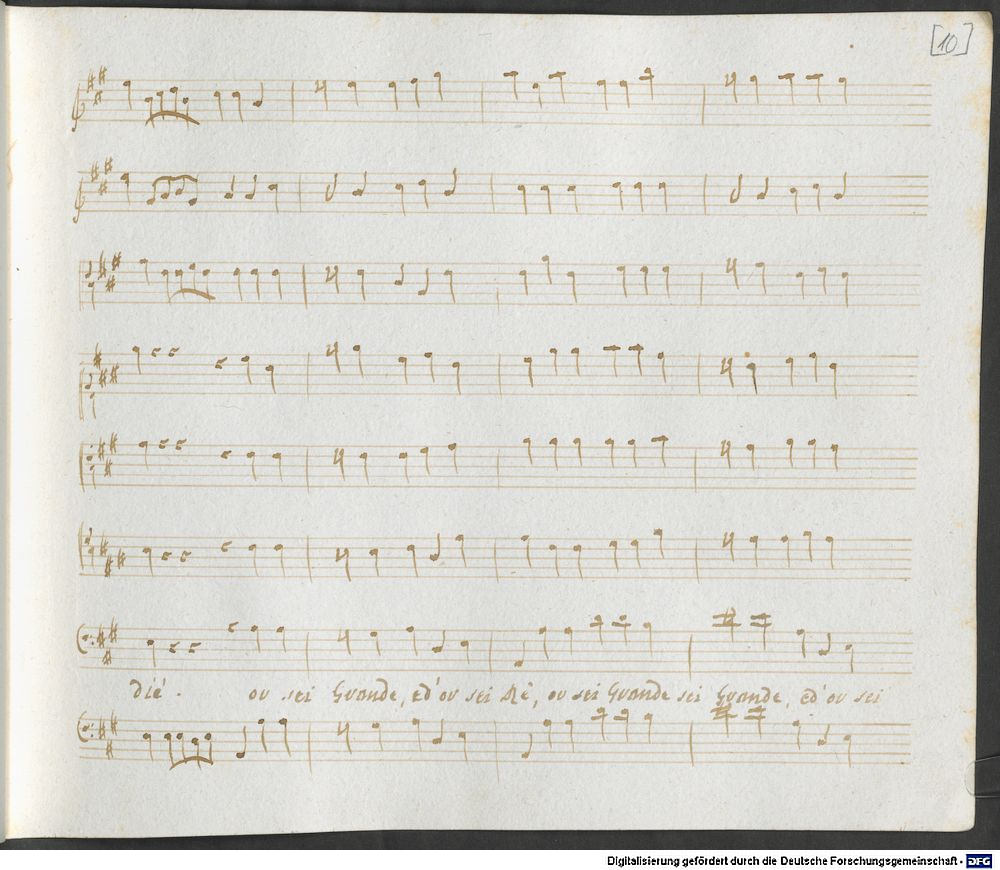 [10]
dié. or sei Grande, ed'or sei Rè, or sei Grande sei Grande, ed'or sei
Digitalisierung gefördert durch die Deutsche Forschungsgemeinschaft - DFG